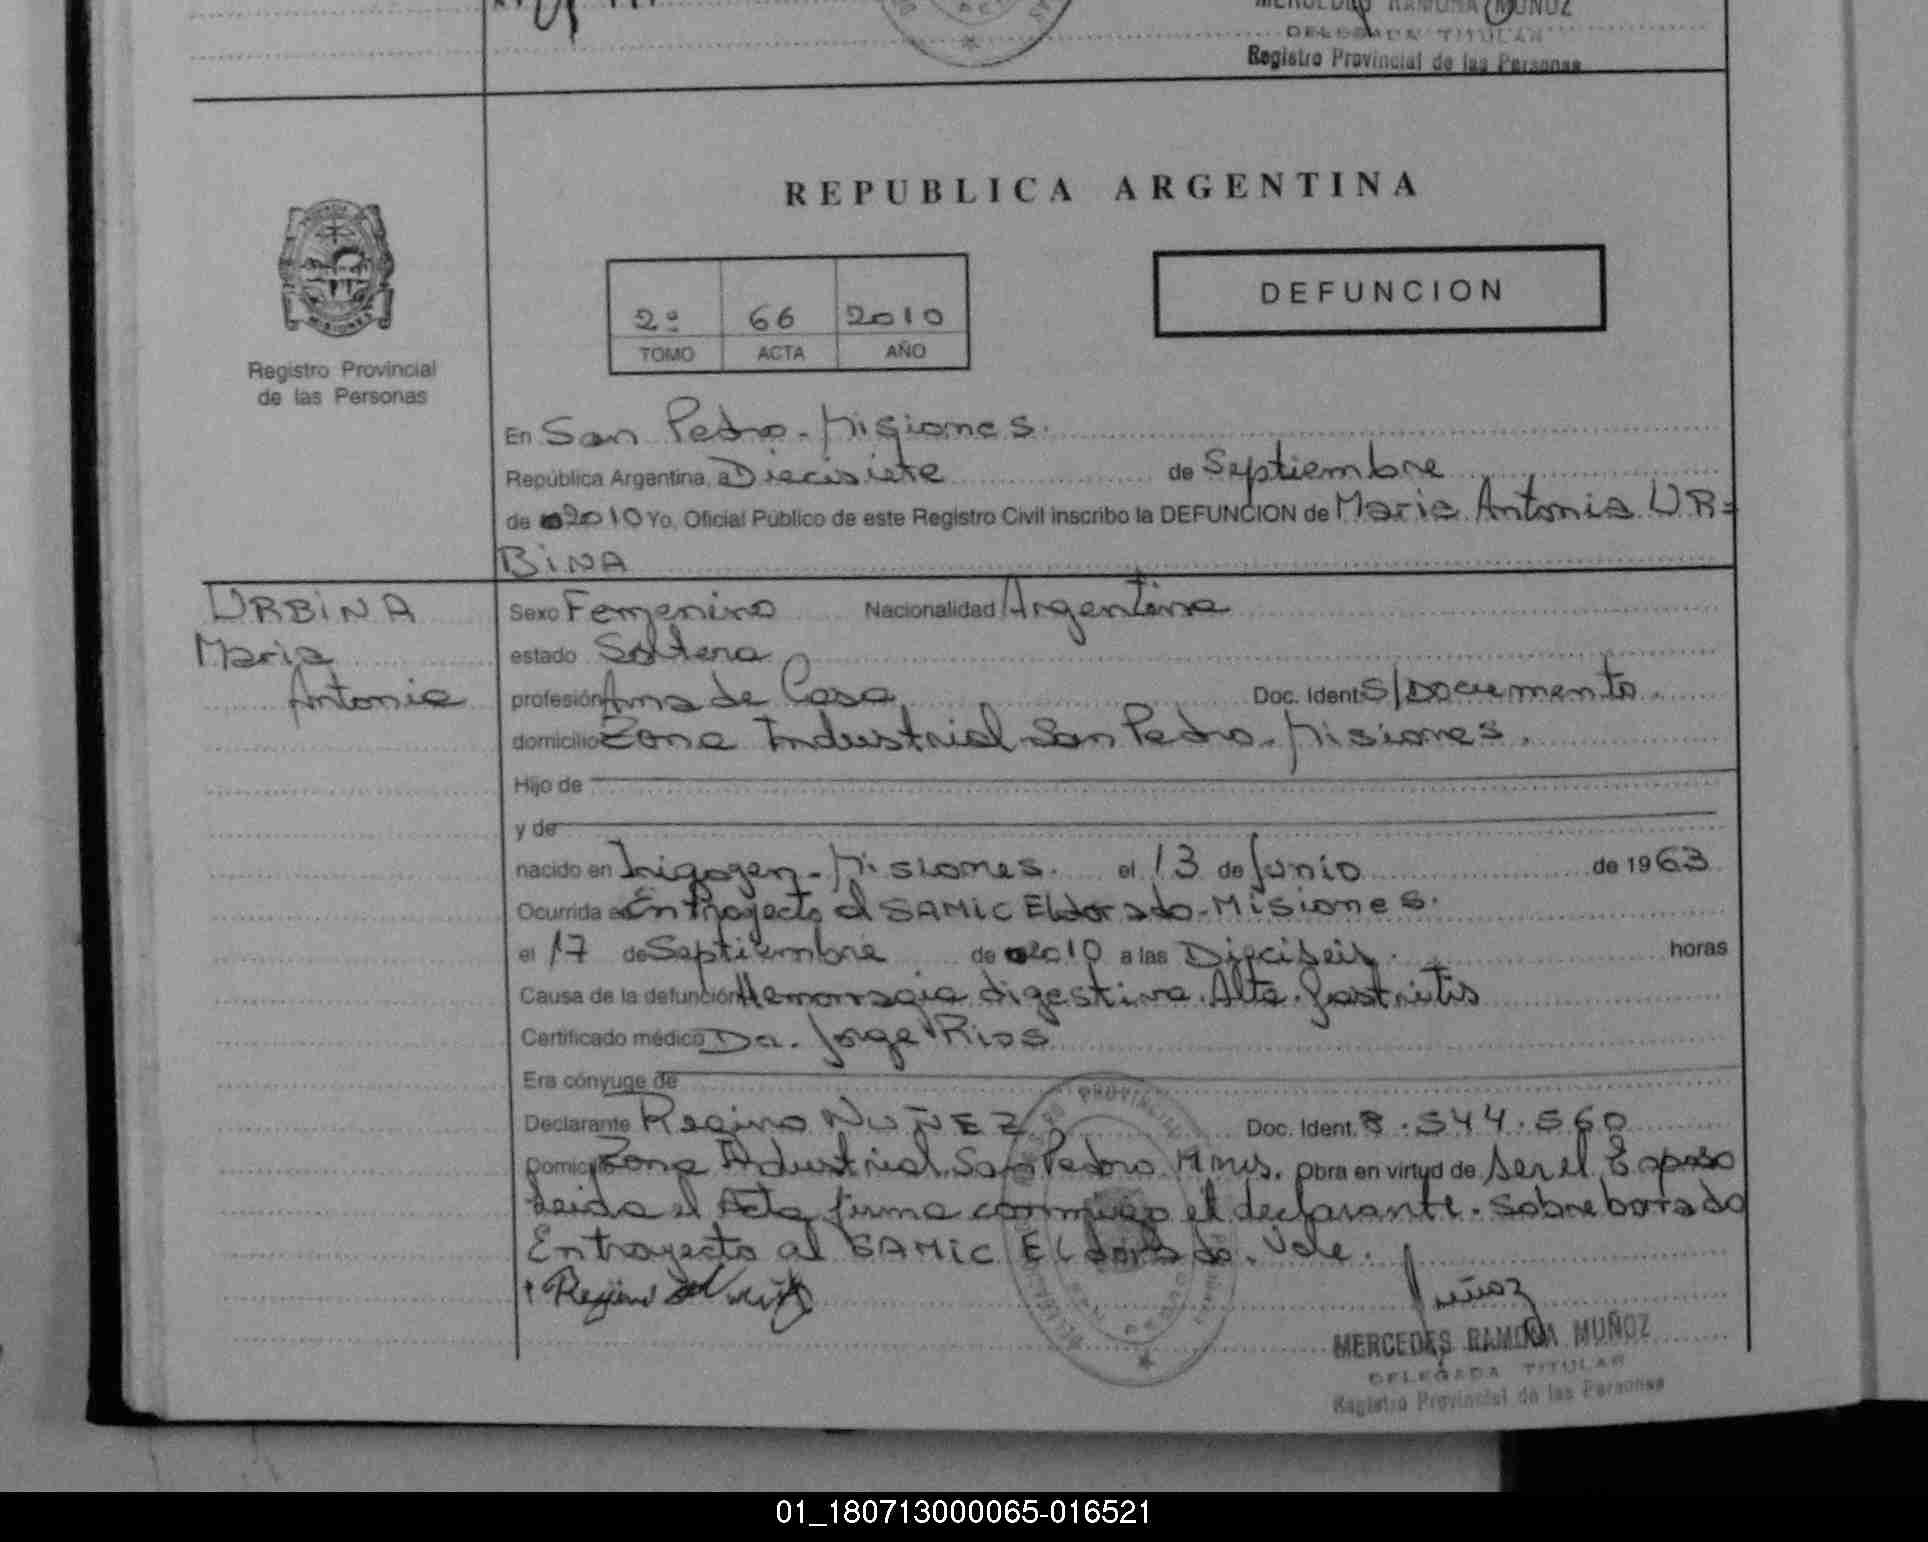 MERCEDES RAMONA MUÑOZ
DELEGADA TITULAR
Registro Provincial de las Personas
REPUBLICA ARGENTINA
DEFUNCION
2º 66 2010
TOMO ACTA AÑO
MISIONES
Registro Provincial
de las Personas
En San Pedro - Misiones.
República Argentina, a Diecisiete de Septiembre
de 2010 Yo, Oficial Público de este Registro Civil inscribo la DEFUNCION de Maria Antonia UR=
BINA
URBINA
Maria
Antonia
Sexo Femenino Nacionalidad Argentina
estado Soltera
profesión Ama de Casa Doc. Ident. S/Documento.
domicilio Zona Industrial San Pedro - Misiones.
Hijo de
y de
nacido en Irigoyen - Misiones. el 13 de Junio de 1963
Ocurrida en En Trayecto al SAMIC Eldorado - Misiones.
el 17 de Septiembre de 2010 a las Dieciseis. horas
Causa de la defunción Hemorragia digestiva Alta. gastritis
Certificado médico Dr. Jorge Rios
Era cónyuge de
Declarante Regino NUÑEZ Doc. Ident. 8.544.560
Domicilio Zona Industrial San Pedro Mnes. Obra en virtud de ser el Esposo
Leida el Acta firma conmigo el declarante. Sobre borrado
En trayecto al SAMIC Eldorado. Vale.
Muñoz
MERCEDES RAMONA MUÑOZ
DELEGADA TITULAR
Registro Provincial de las Personas
01_180713000065-016521